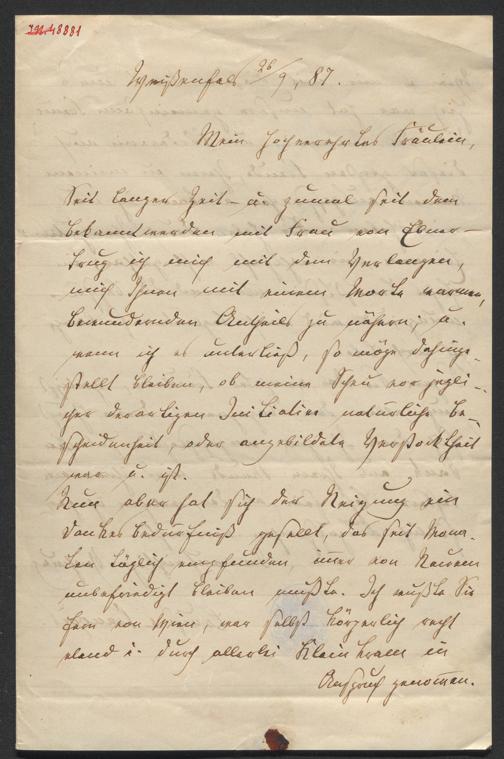 I.N. 48881
Weißenfels 26/9. 87.
Mein hochverehrtes Fräulein,
Seit langer Zeit – u. zumal seit dem
Bekanntwerden mit Frau von Ebner –
trug ich mich mit dem Verlangen,
mich Ihnen mit einem Worte warmen,
bewundernden Antheils zu nähern; u.
wenn ich es unterließ, so möge dahinge-
stellt bleiben, ob meine Scheu vor jegli-
cher derartigen Initiative natürliche Be-
scheidenheit, oder angebildete Verstocktheit
war u. ist.
Nun aber hat sich der Neigung ein
Dankesbedürfniß gesellt, das seit Mona-
ten täglich empfunden, immer von Neuem
unbefriedigt bleiben mußte. Ich wußte Sie
fern von Wien, war selbst körperlich recht
elend u. durch allerlei Kleinkram in
Anspruch genommen.